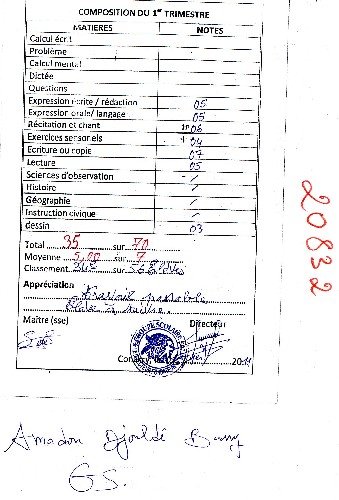 COMPOSITION DU 1er TRIMESTRE
MATIERES NOTES
Calcul écrit
Problème
Calcul mental
Dictée
Questions
Expression écrite / rédaction 05
Expression orale/ langage 05
Récitation et chant 06
Exercices sensoriels 04
Ecriture ou copie 07
Lecture 05
Sciences d'observation /
Histoire /
Géographie /
Instruction civique /
dessin 03
Total 35 sur 70
Moyenne 5,00 sur 7
Classement 34e sur
Appréciation
Travail passable
Maître (sse) Directeur
Conakry, 2011
20832
Amadou Djouldé Barry
GS.